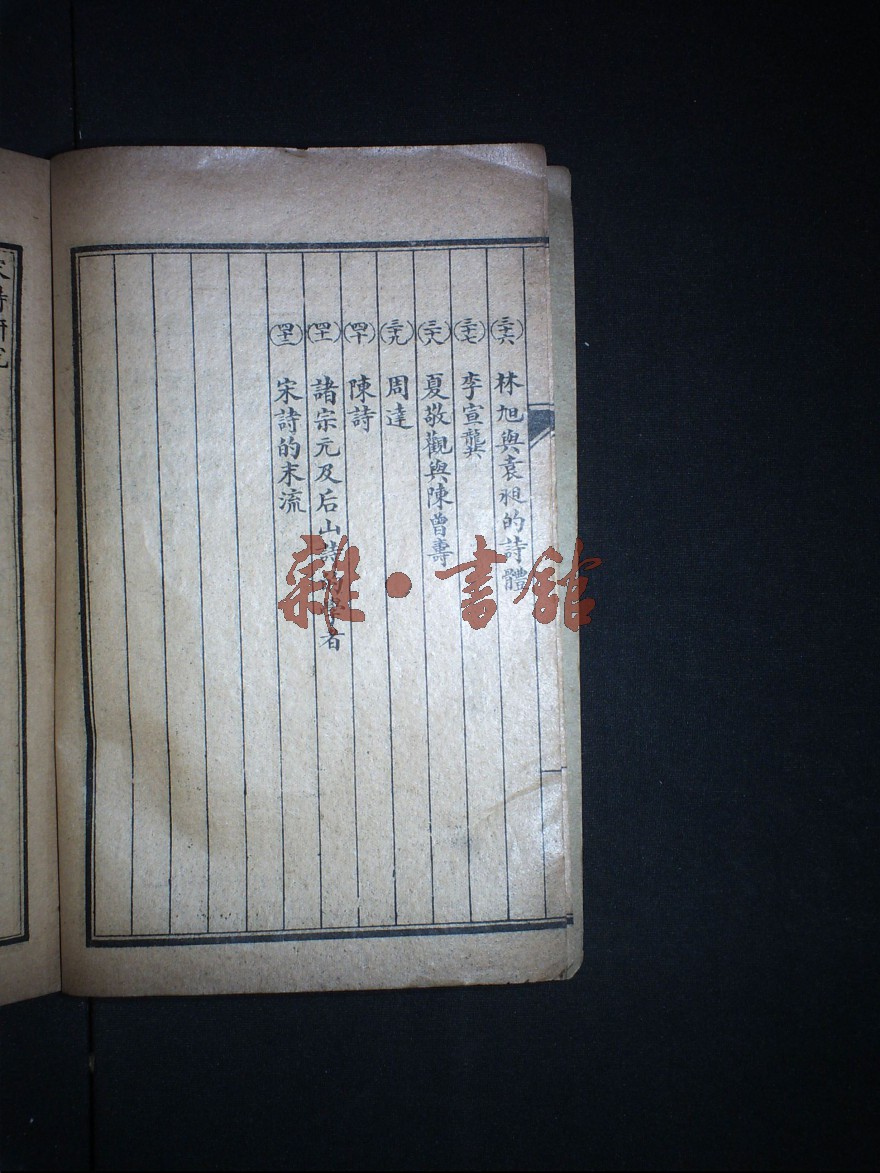 (三十六) 林旭與袁昶的詩體
(三十七) 李宣龔
(三十八) 夏敬觀與陳曾壽
(三十九) 周達
(四十) 陳詩
(四十一) 諸宗元及后山詩的學者
(四十二) 宋詩的末流
宋詩研究
雜·書館